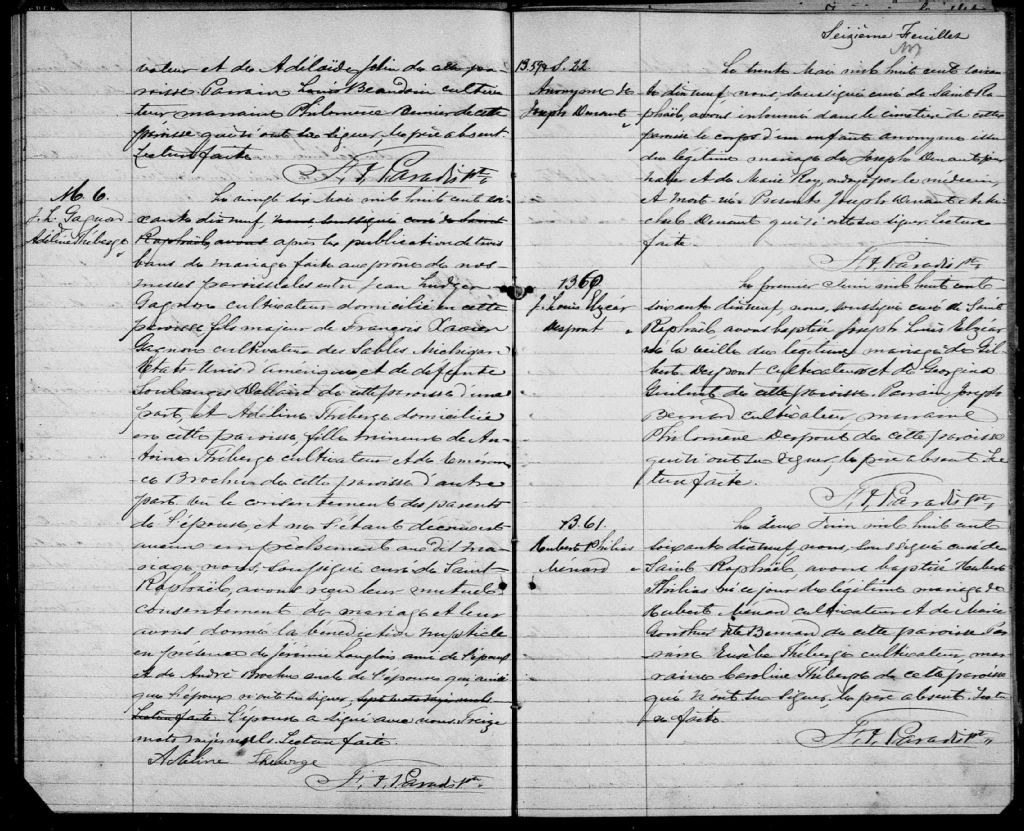 vateur et de Adélaïde Jolin de cette pa-
roisse. Parrain Louis Beaudoin cultiva-
teur marraine Philomène Bernier de cette
paroisse qui n'ont su signer, le père absent.
Lecture faite.
F. J. Paradis Ptre
M. 6.
J. L. Gagnon
&
Adeline Théberge
Le vingt six Mai mil huit cent soi-
xante dix neuf, nous, soussigné curé de Saint
Raphaël, avons après la publication de trois
bans de mariage faite aux prônes de nos
messes paroissiales entre Jean Ludger
Gagnon cultivateur domicilié en cette
paroisse fils majeur de François Xavier
Gagnon cultivateur des Sables Michigan
États-Unis d'Amérique et de défunte
Soulanges Dallaire de cette paroisse d'une
part, et Adeline Théberge domiciliée
en cette paroisse, fille mineure de An-
toine Théberge cultivateur et de Eméren-
ce Brochu de cette paroisse d'autre
part vu le consentement des parents
de l'épouse, et ne s'étant découvert
aucun empêchement au dit ma-
riage, nous, soussigné curé de Saint
Raphaël, avons reçu leur mutuel
consentement de mariage et leur
avons donné la bénédiction nuptiale
en présence de Jérémie Langlois ami de l'époux
et de André Brochu oncle de l'épouse qui, ainsi
que l'époux n'ont su signer, sept mots rayés nuls.
Lecture faite. l'épouse a signé avec nous. Treize
mots rayés nuls. Lecture faite.
Adeline Theberge
F. J. Paradis Ptre
Seizième Feuillet
B 59 & S. 22.
Anonyme de
Joseph Durant
Le trente Mai mil huit cent soixan-
te dix neuf, nous, soussigné curé de Saint Ra-
phaël, avons inhumé dans le cimetière de cette
paroisse le corps d'un enfant anonyme issu
du légitime mariage de Joseph Durant jour-
nalier et de Marie Roy, ondoyé par le médecin,
et mort né. Présents Joseph Durant et Mi-
chel Durant qui n'ont su signer. Lecture
faite.
F. J. Paradis Ptre
B 60
J. Louis Elzéar
Despont
Le premier Juin mil huit cent
soixante dix neuf, nous, soussigné curé de Saint
Raphaël avons baptisé Joseph Louis Elzear
né la veille du légitime mariage de Gil-
bert Despont cultivateur et de Georgina
de cette paroisse. Parrain Joseph
Bernard cultivateur, marraine
Philomène Despont de cette paroisse
qui n'ont su signer, le père absent. Lec-
ture faite.
F. J. Paradis Ptre
B. 61.
Hubert Philias
Menard
Le deux Juin mil huit cent
soixante dix neuf, nous, soussigné curé de
Saint Raphaël, avons baptisé Hubert
Philias né ce jour du légitime mariage de
Hubert Menard cultivateur et de Marie
Bernard de cette paroisse Par-
rain Eusèbe Théberge cultivateur, mar-
raine Caroline Théberge de cette paroisse
qui n'ont su signer, le père absent. Lectu-
re faite.
F. J. Paradis Ptre